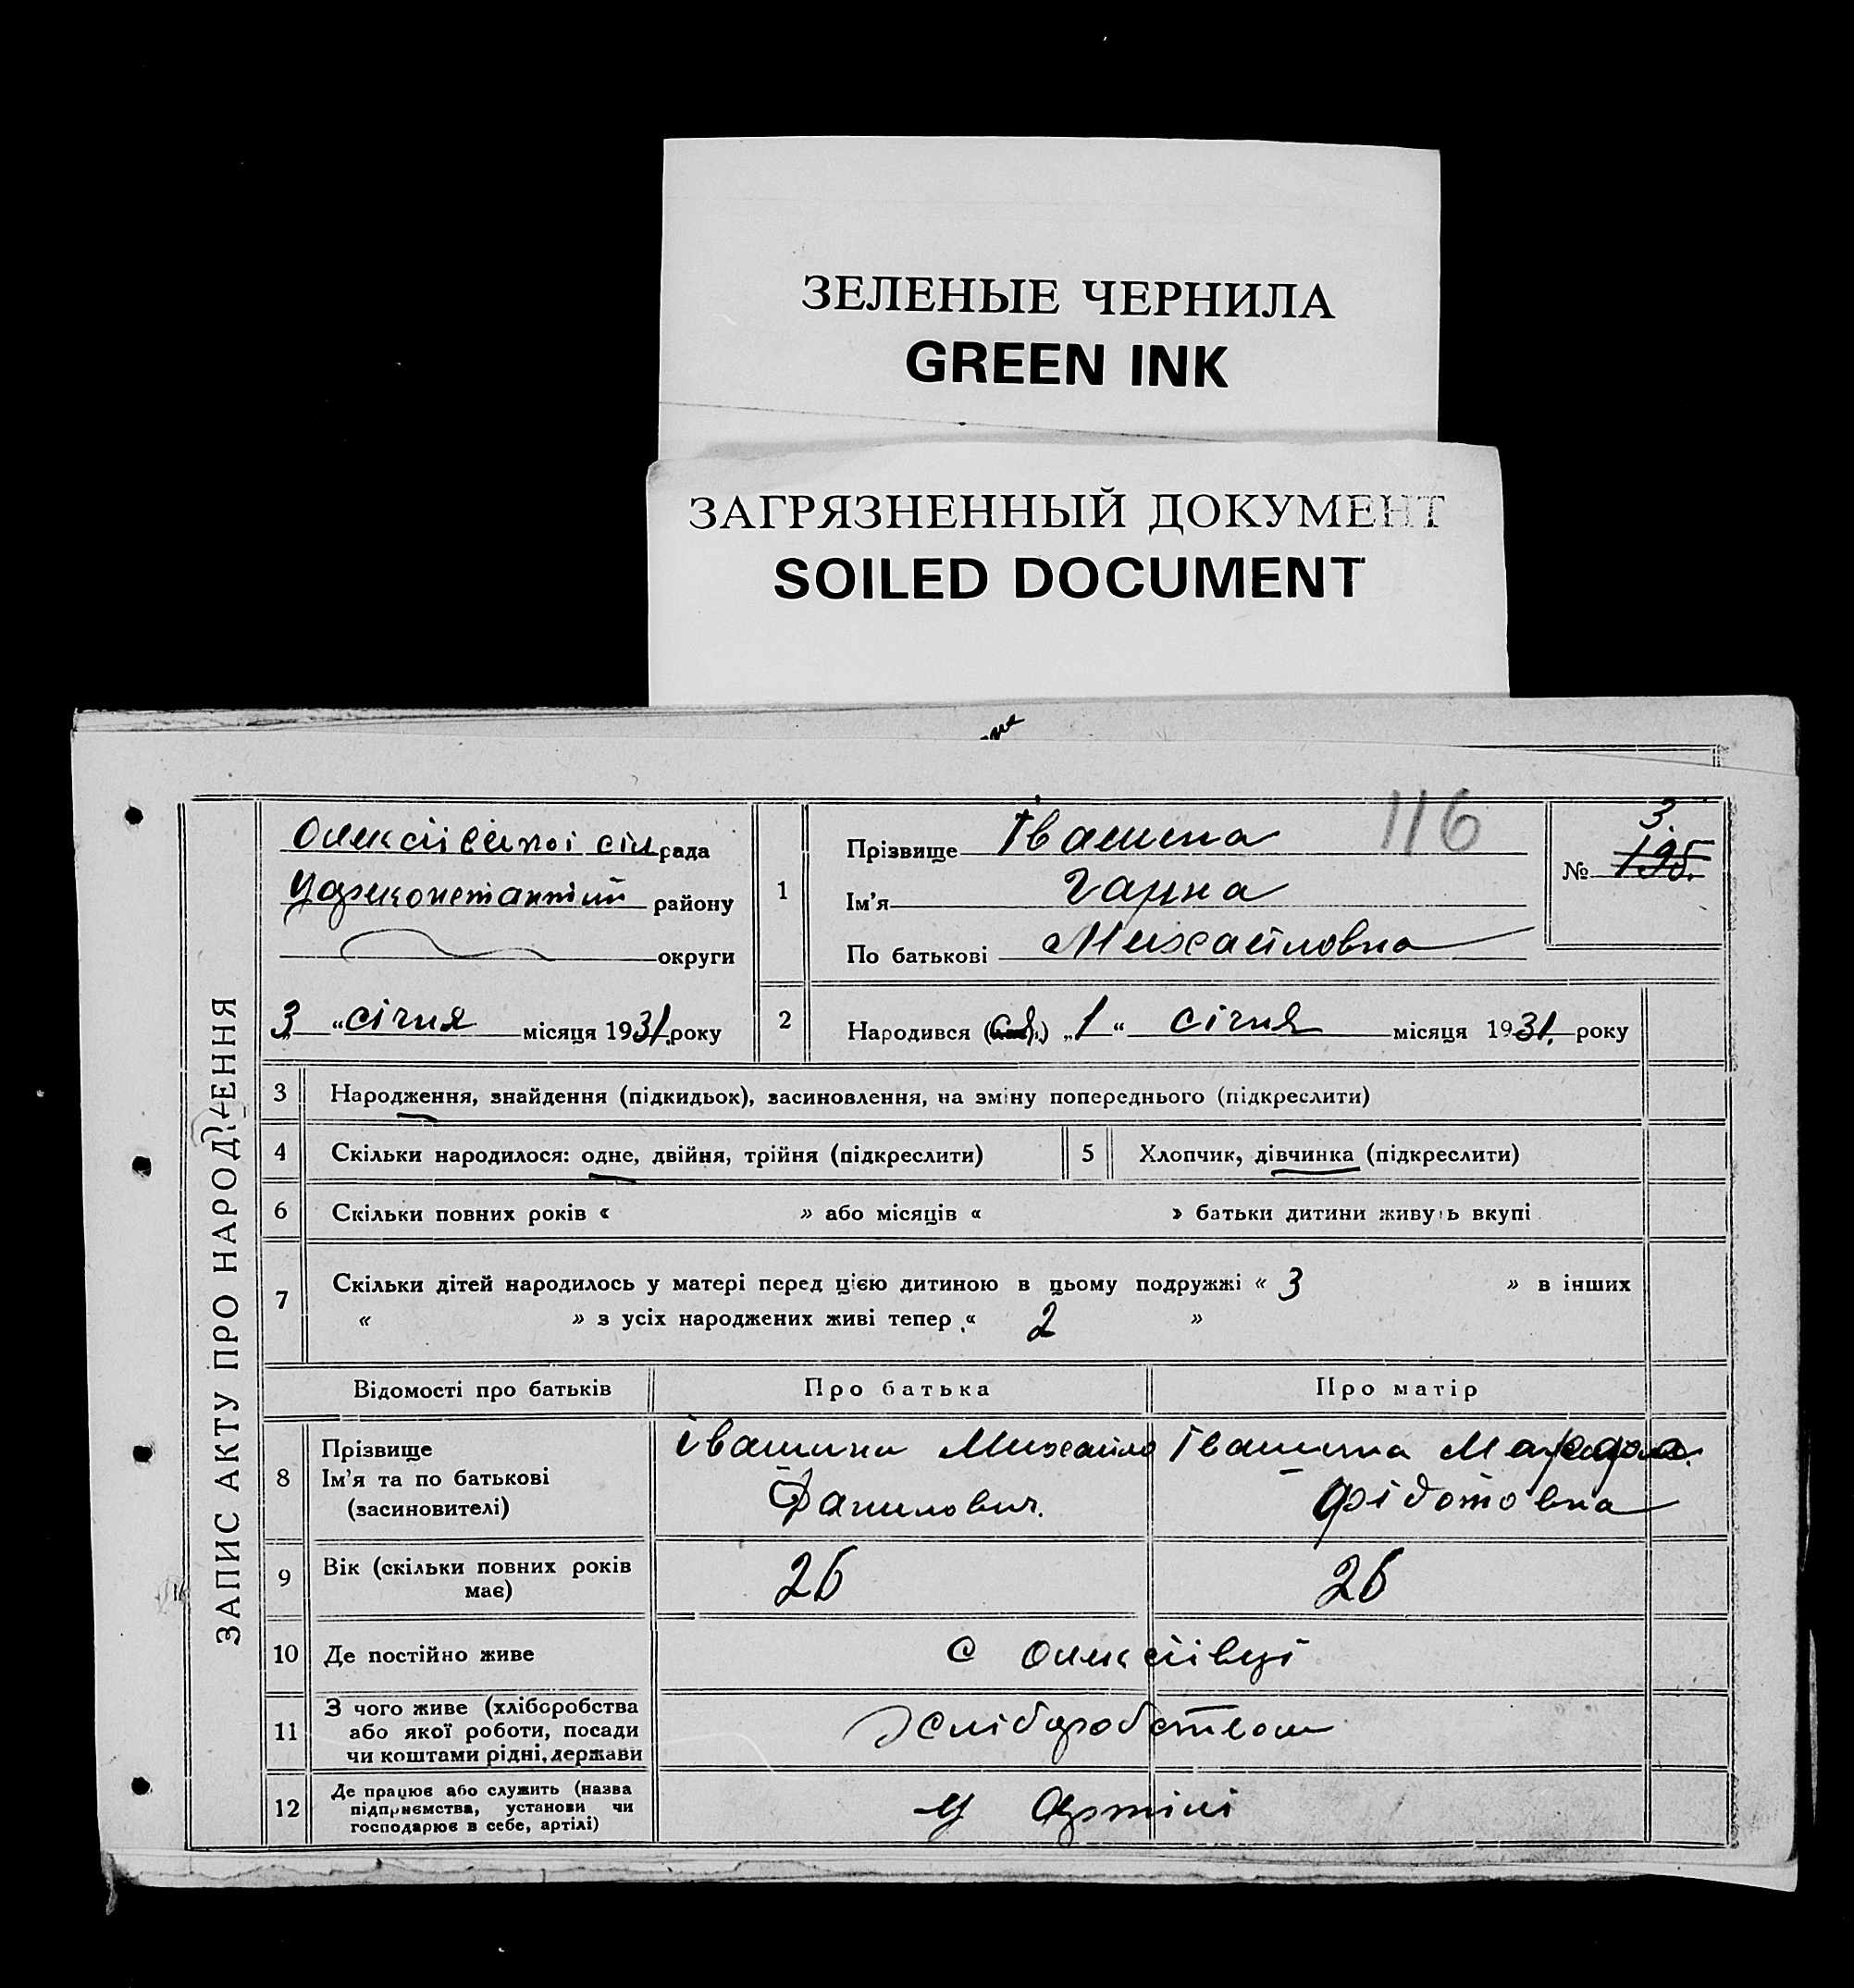 ЗЕЛЕНЫЕ ЧЕРНИЛА
GREEN INK
ЗАГРЯЗНЕННЫЙ ДОКУМЕНТ
SOILED DOCUMENT
116
ЗАПИС АКТУ ПРО НАРОДЖЕННЯ
сіл рада
району
округи
3 „ січня місяця 1931. року
1
Прізвище Івашина
Ім'я Ганна
По батькові Михайловна
3.
№ 195.
2
Народився ( ) „ 1 “ січня місяця 1931. року
3 Народження, знайдення (підкидьок), засиновлення, на зміну попереднього (підкреслити)
4 Скільки народилося: одне, двійня, трійня (підкреслити)
5 Хлопчик, дівчинка (підкреслити)
6 Скільки повних років « » або місяців « » батьки дитини живуть вкупі
7 Скільки дітей народилось у матері перед цією дитиною в цьому подружжі « 3 » в інших
« » з усіх народжених живі тепер « 2 »
Відомості про батьків Про батька Про матір
8 Прізвище
Ім'я та по батькові
(засиновителі)
Івашина Михайло
Данилович.
Івашина
Фідотовна
9 Вік (скільки повних років
має)
26 26
10 Де постійно живе с Олексіівці
11 З чого живе (хліборобства
або якої роботи, посади
чи коштами рідні, держави
Хліборобством
12 Де працює або служить (назва
підприємства, установи чи
господарює в себе, артілі)
у Артілі